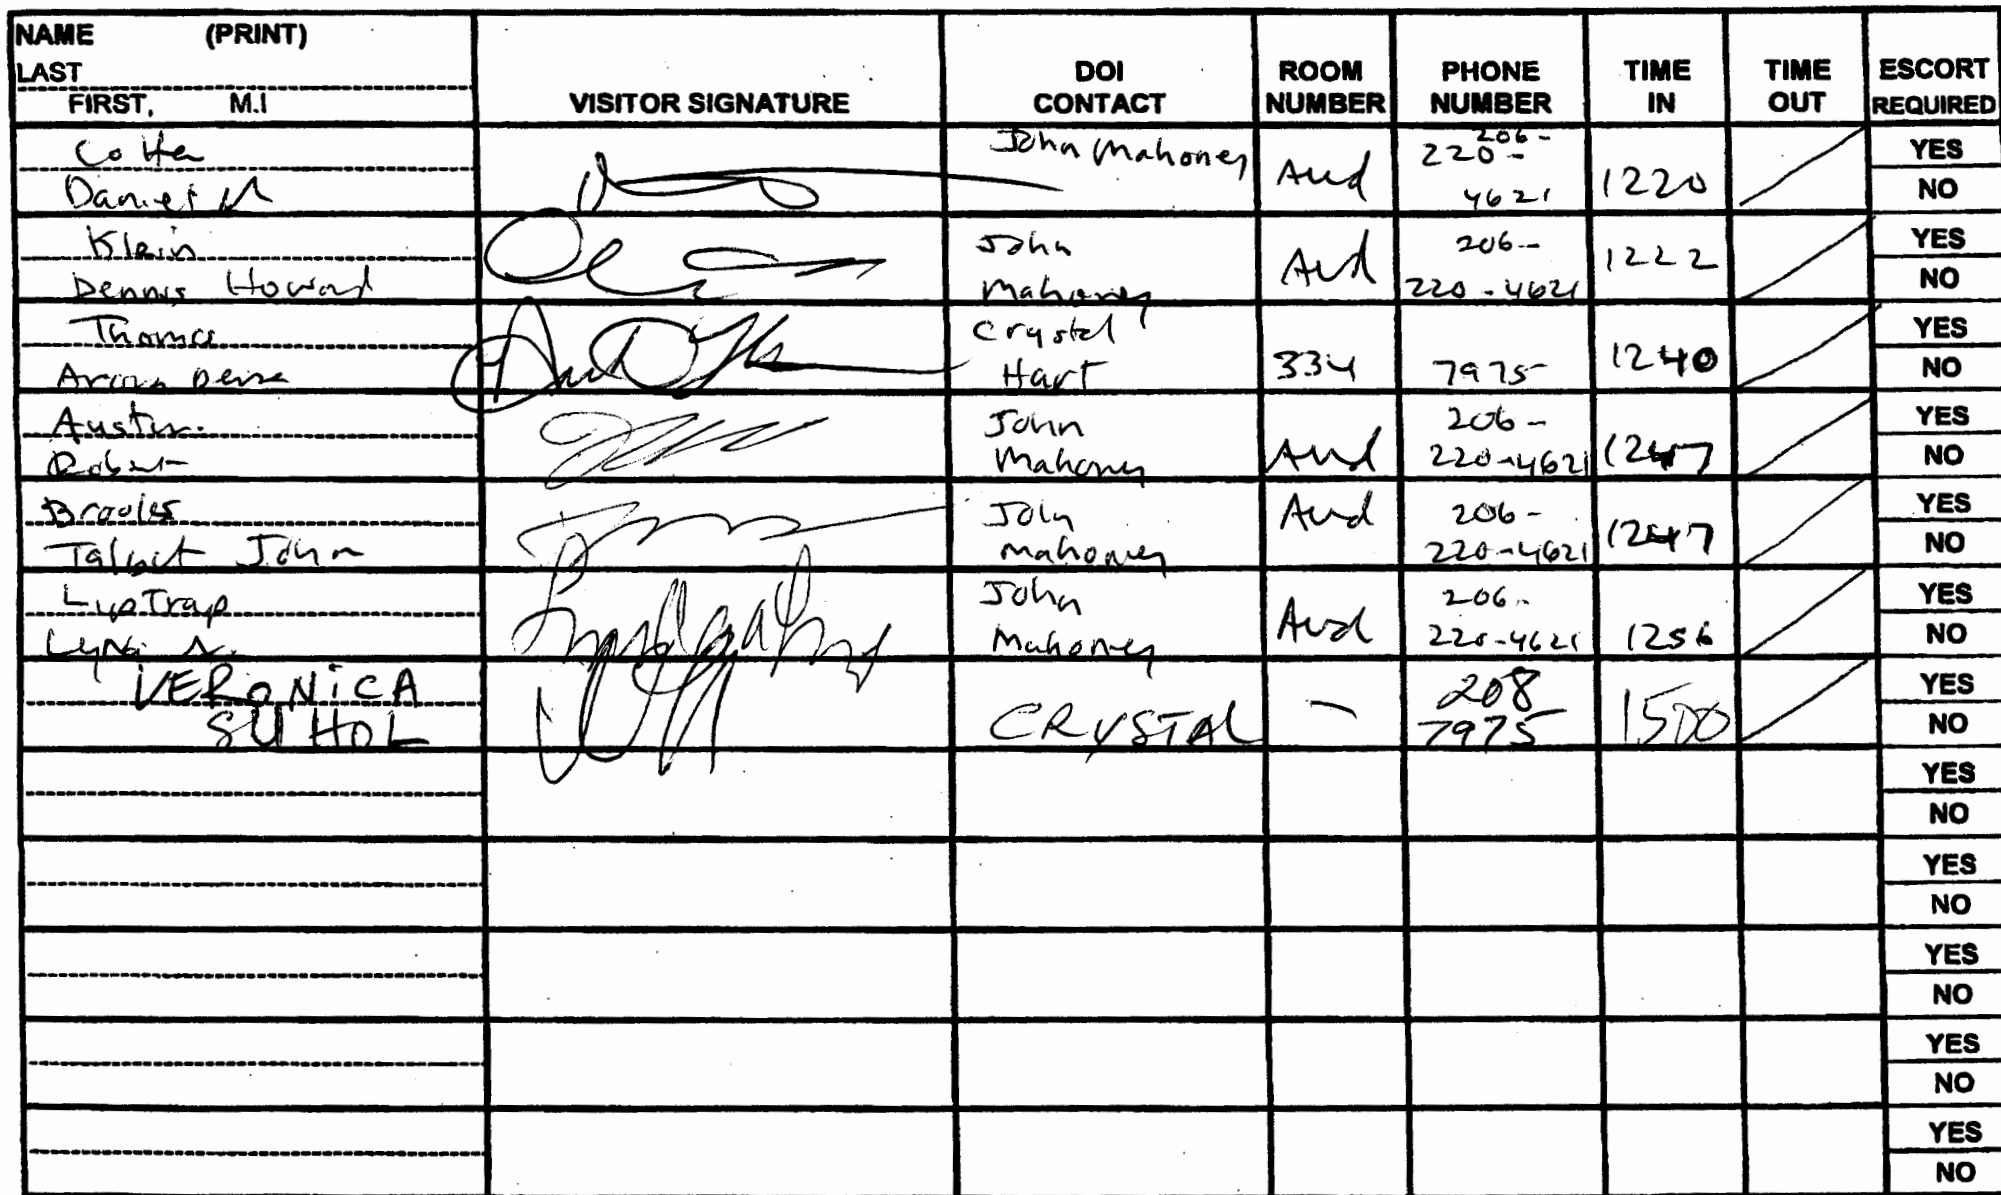 NAME (PRINT)
LAST
FIRST, M.I
VISITOR SIGNATURE
DOI
CONTACT
ROOM
NUMBER
PHONE
NUMBER
TIME
IN
TIME
OUT
ESCORT
REQUIRED
Daniel M
John Mahoney
Aud
206-
220-
4621
1220
YES
NO
Klein
Dennis Howard
John
Mahoney
Aud
206-
220-4621
1222
YES
NO
Thomas
Crystal
Hart
334
7975
1240
YES
NO
Austin
Robert
John
Mahoney
Aud
206-
220-4621
1247
YES
NO
Talbut John
John
Mahoney
Aud
206-
220-4621
1247
YES
NO
LypTrap
John
Mahoney
Aud
206-
220-4621
1256
YES
NO
VERONICA
SUHOL
CRYSTAL
-
208
7975
1500
YES
NO
YES
NO
YES
NO
YES
NO
YES
NO
YES
NO